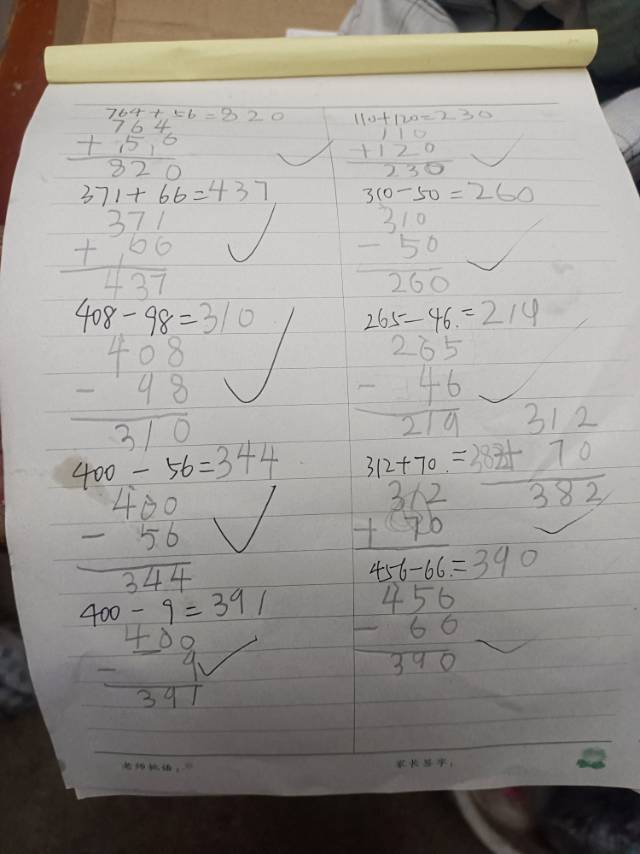 764+56=820
764
+ 56
820
371+66=437
371
+ 66
437
408-98=310
408
- 98
310
400-56=344
400
- 56
344
400-9=391
400
- 9
391
110+120=230
110
+120
230
310-50=260
310
- 50
260
265-46=219
265
- 46
219
312+70=382
312
+ 70
312
+ 70
382
456-66=390
456
- 66
390
老师批语:
家长签字: